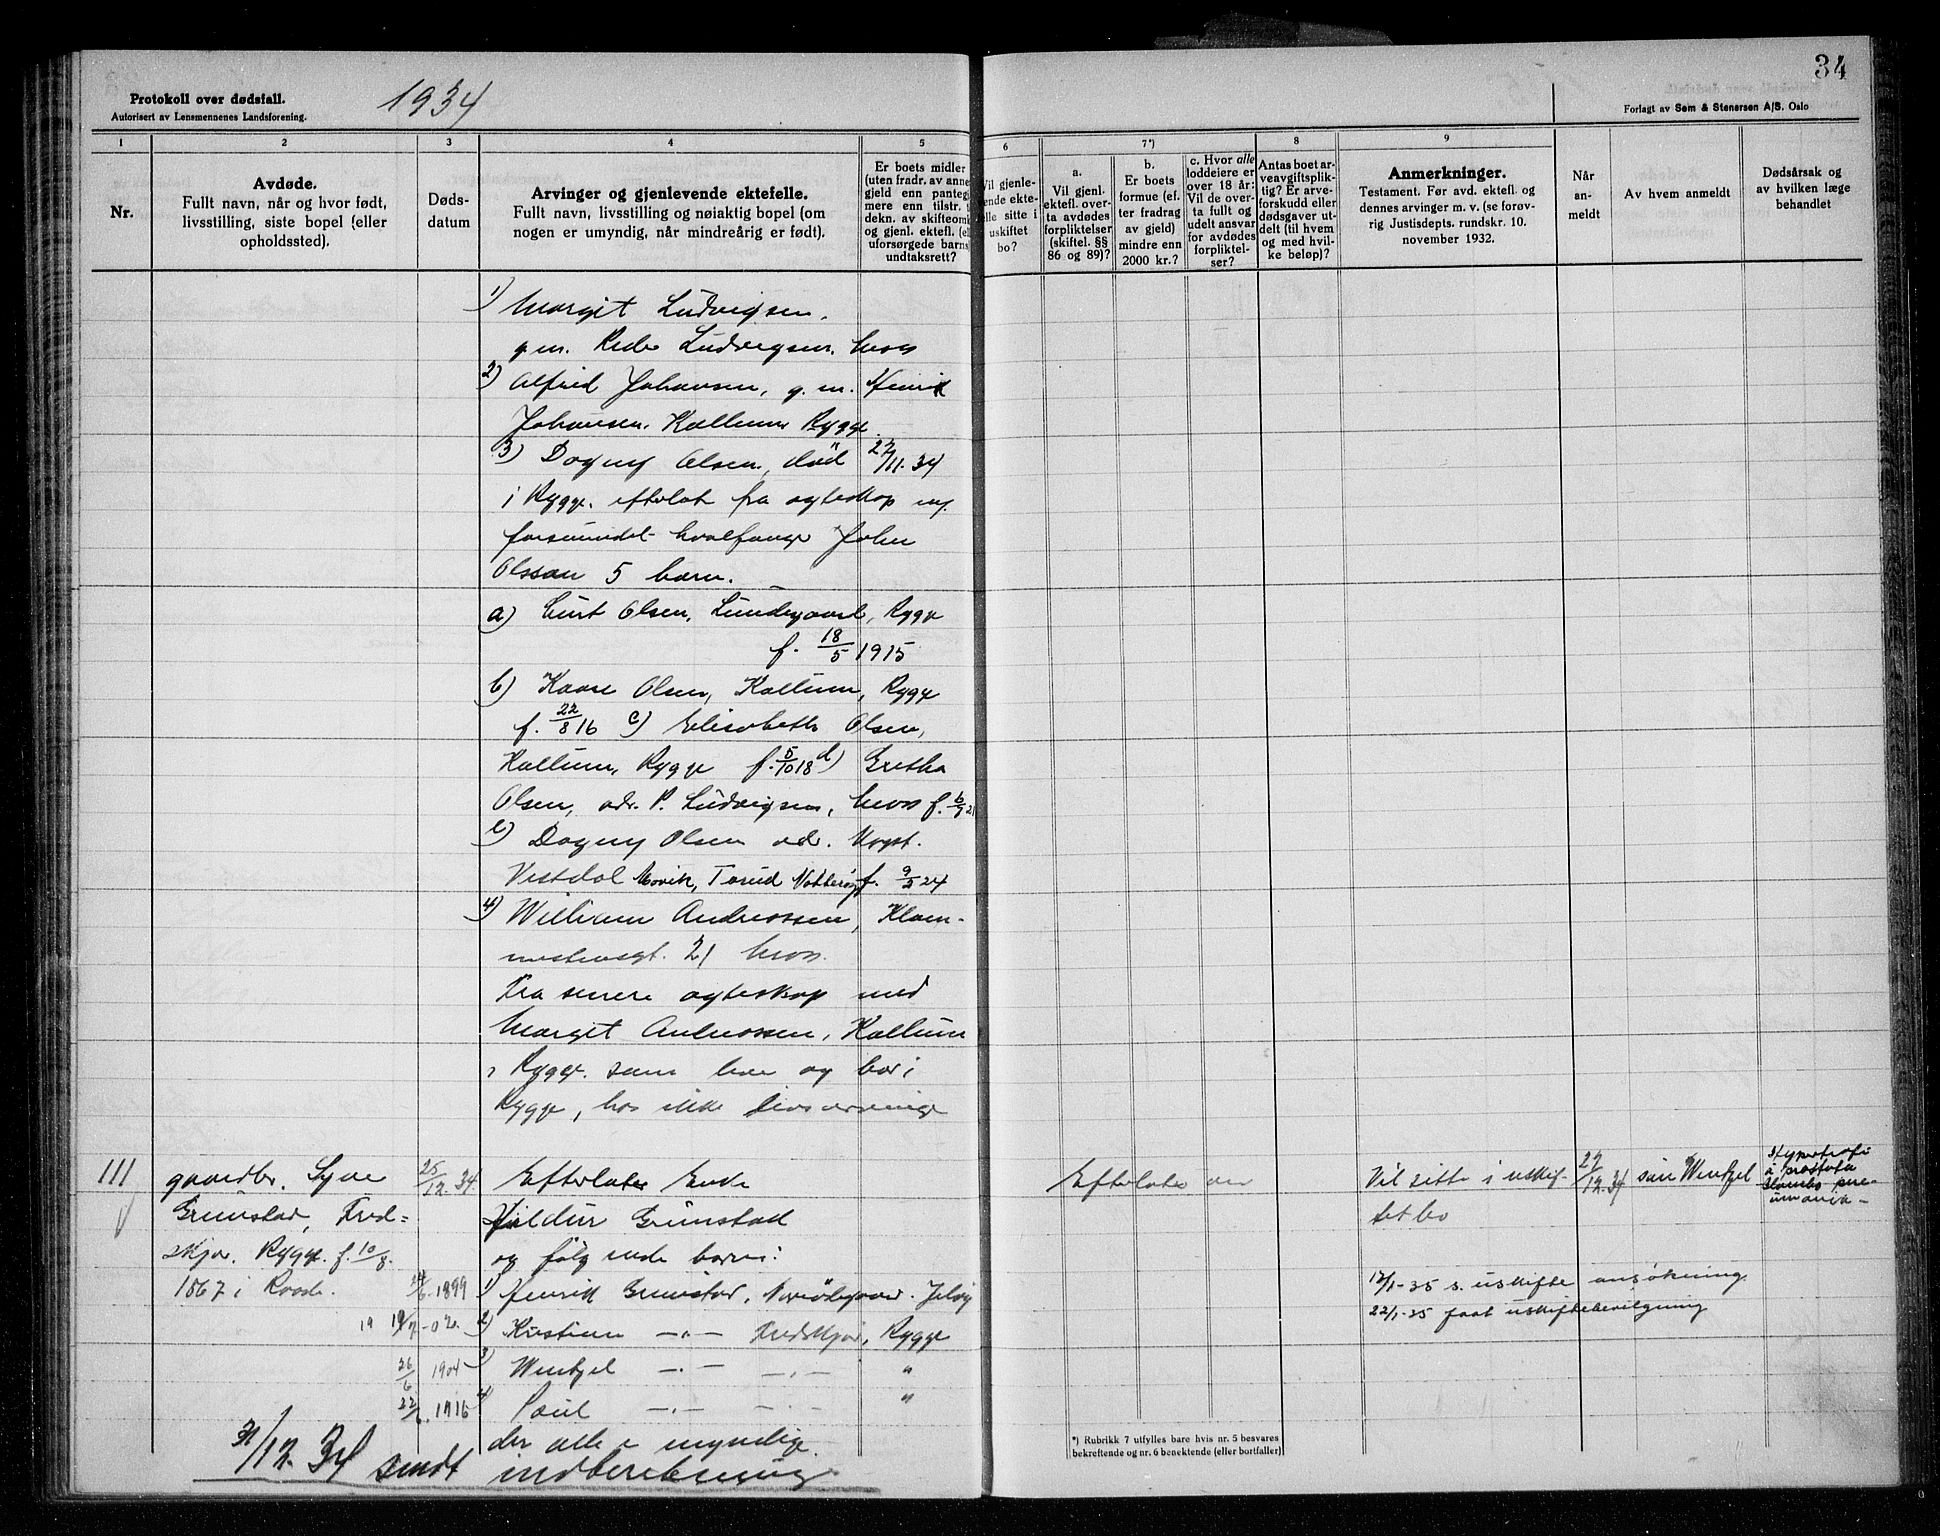 34
Protokoll over dødsfall.
Autorisert av Lensmennenes Landsforening.
1934
Forlagt av Sem & Stenersen A/S. Oslo
1 2 3 4 5 6 7*) 8 9
Nr.
Avdøde.
Fullt navn, når og hvor født,
livsstilling, siste bopel (eller
opholdssted).
Døds-
datum
Arvinger og gjenlevende ektefelle.
Fullt navn, livsstilling og nøiaktig bopel (om
nogen er umyndig, når mindreårig er født).
Er boets midler
(uten fradr. av anne
gjeld enn pantegj
mere enn tilstr. t
dekn. av skifteomk
og gjenl. ektefl. (el
uforsørgede barns)
undtaksrett?
Vil gjenle-
ende ekte-
elle sitte i
uskiftet
bo?
a.
Vil gjenl.
ektefl. over-
ta avdødes
forpliktelser
(skiftel. §§
86 og 89)?
b.
Er boets
formue (ef-
ter fradrag
av gjeld)
mindre enn
2000 kr.?
c. Hvor alle
loddeiere er
over 18 år:
Vil de over-
ta fullt og
udelt ansvar
for avdødes
forpliktel-
ser?
Antas boet ar-
veavgiftsplik-
tig? Er arve-
forskudd eller
dødsgaver ut-
delt (til hvem
og med hvil-
ke beløp)?
Anmerkninger.
Testament. Før avd. ektefl. og
dennes arvinger m. v. (se forøv-
rig Justisdepts. rundskr. 10.
november 1932.
Når
an-
meldt
Av hvem anmeldt
Dødsårsak og
av hvilken læge
behandlet
1) Margit Ludvigsen,
g.m. Ludvigsen, Moss
2) Alfred Johansen, g.m. Henrik
Johansen, Kallum Rygge
3) Dagny Olsen, død 22/11-34
i Rygge. efterlot fra egteskap m/
forsvundet hvalfanger John
Olssan 5 barn.
a) Curt Olsen, Lundegaard, Rygge
f. 18/5 1915
b) Kaare Olsen, Kallum, Rygge
f. 22/8 16 c) Elisabeth Olsen,
Kallum, Rygge f. 5/10 18 d) Gretha
Olsen, adr. P. Ludvigsen, Moss f.
e) Dagny Olsen adr.
Vestdal Torød Nøtterøy f. 24
4) William Andreassen,
21 Moss.
Fra senere egteskap med
Margit Andreassen, Kallum
i Rygge. som lever og bor i
Rygge, has ikke livsarvinge
111 gaardbr. Syver 25/12-34 Efterlater Enke Efterlater Vil sitte i uskif- 27/12-34 søn Wentzel Hypertrofi
Grimstad, Fred- Hildur Grimstad tet bo
skjør, Rygge. f. 10/8 og følgende barn:
1867 i Raade. 1899 1) Henrik Grimstad, Jeløy 17/1-35 s. uskifte ansøkning
2) Kristian —"— Fredskjør, Rygge 22/1-35 faat uskiftebevilgning
26/6 1904 3) Wentzel —"— —"— "
1916 4) Paul —"— —"— "
der alle er myndige.
31/12-34 sendt indberetning
*) Rubrikk 7 utfylles bare hvis nr. 5 besvares
bekreftende og nr. 6 benektende (eller bortfaller)